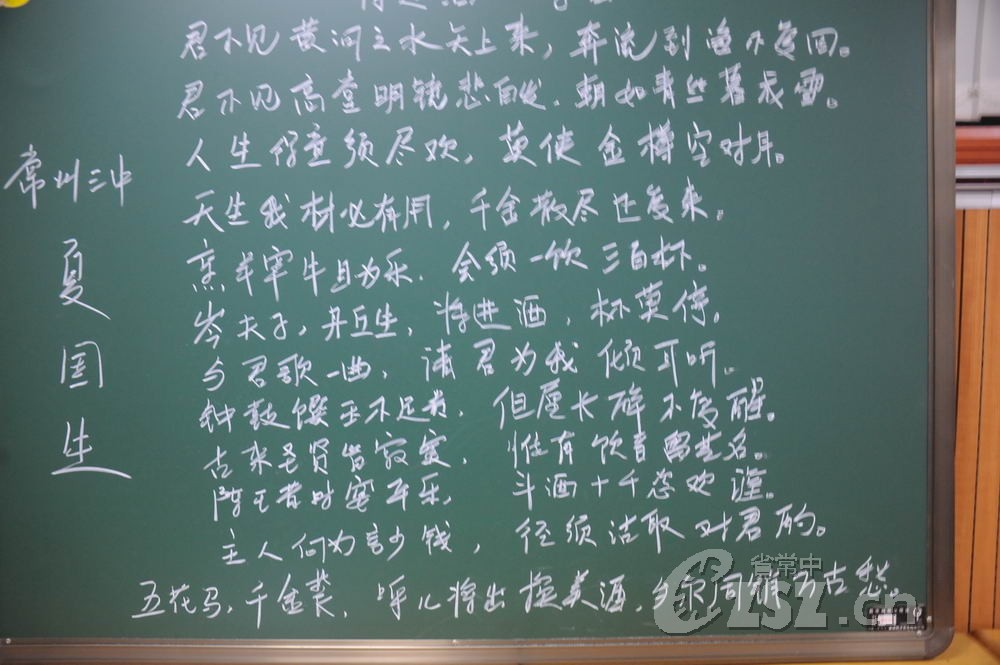 君不见黄河之水天上来，奔流到海不复回。
君不见高堂明镜悲白发，朝如青丝暮成雪。
人生得意须尽欢，莫使金樽空对月。
天生我材必有用，千金散尽还复来。
烹羊宰牛且为乐，会须一饮三百杯。
岑夫子，丹丘生，将进酒，杯莫停。
与君歌一曲，请君为我倾耳听。
钟鼓馔玉不足贵，但愿长醉不复醒。
古来圣贤皆寂寞，惟有饮者留其名。
陈王昔时宴平乐，斗酒十千恣欢谑。
主人何为言少钱，径须沽取对君酌。
五花马，千金裘，呼儿将出换美酒，与尔同销万古愁。
常州三中
夏国生
省常中
CZSZ.com